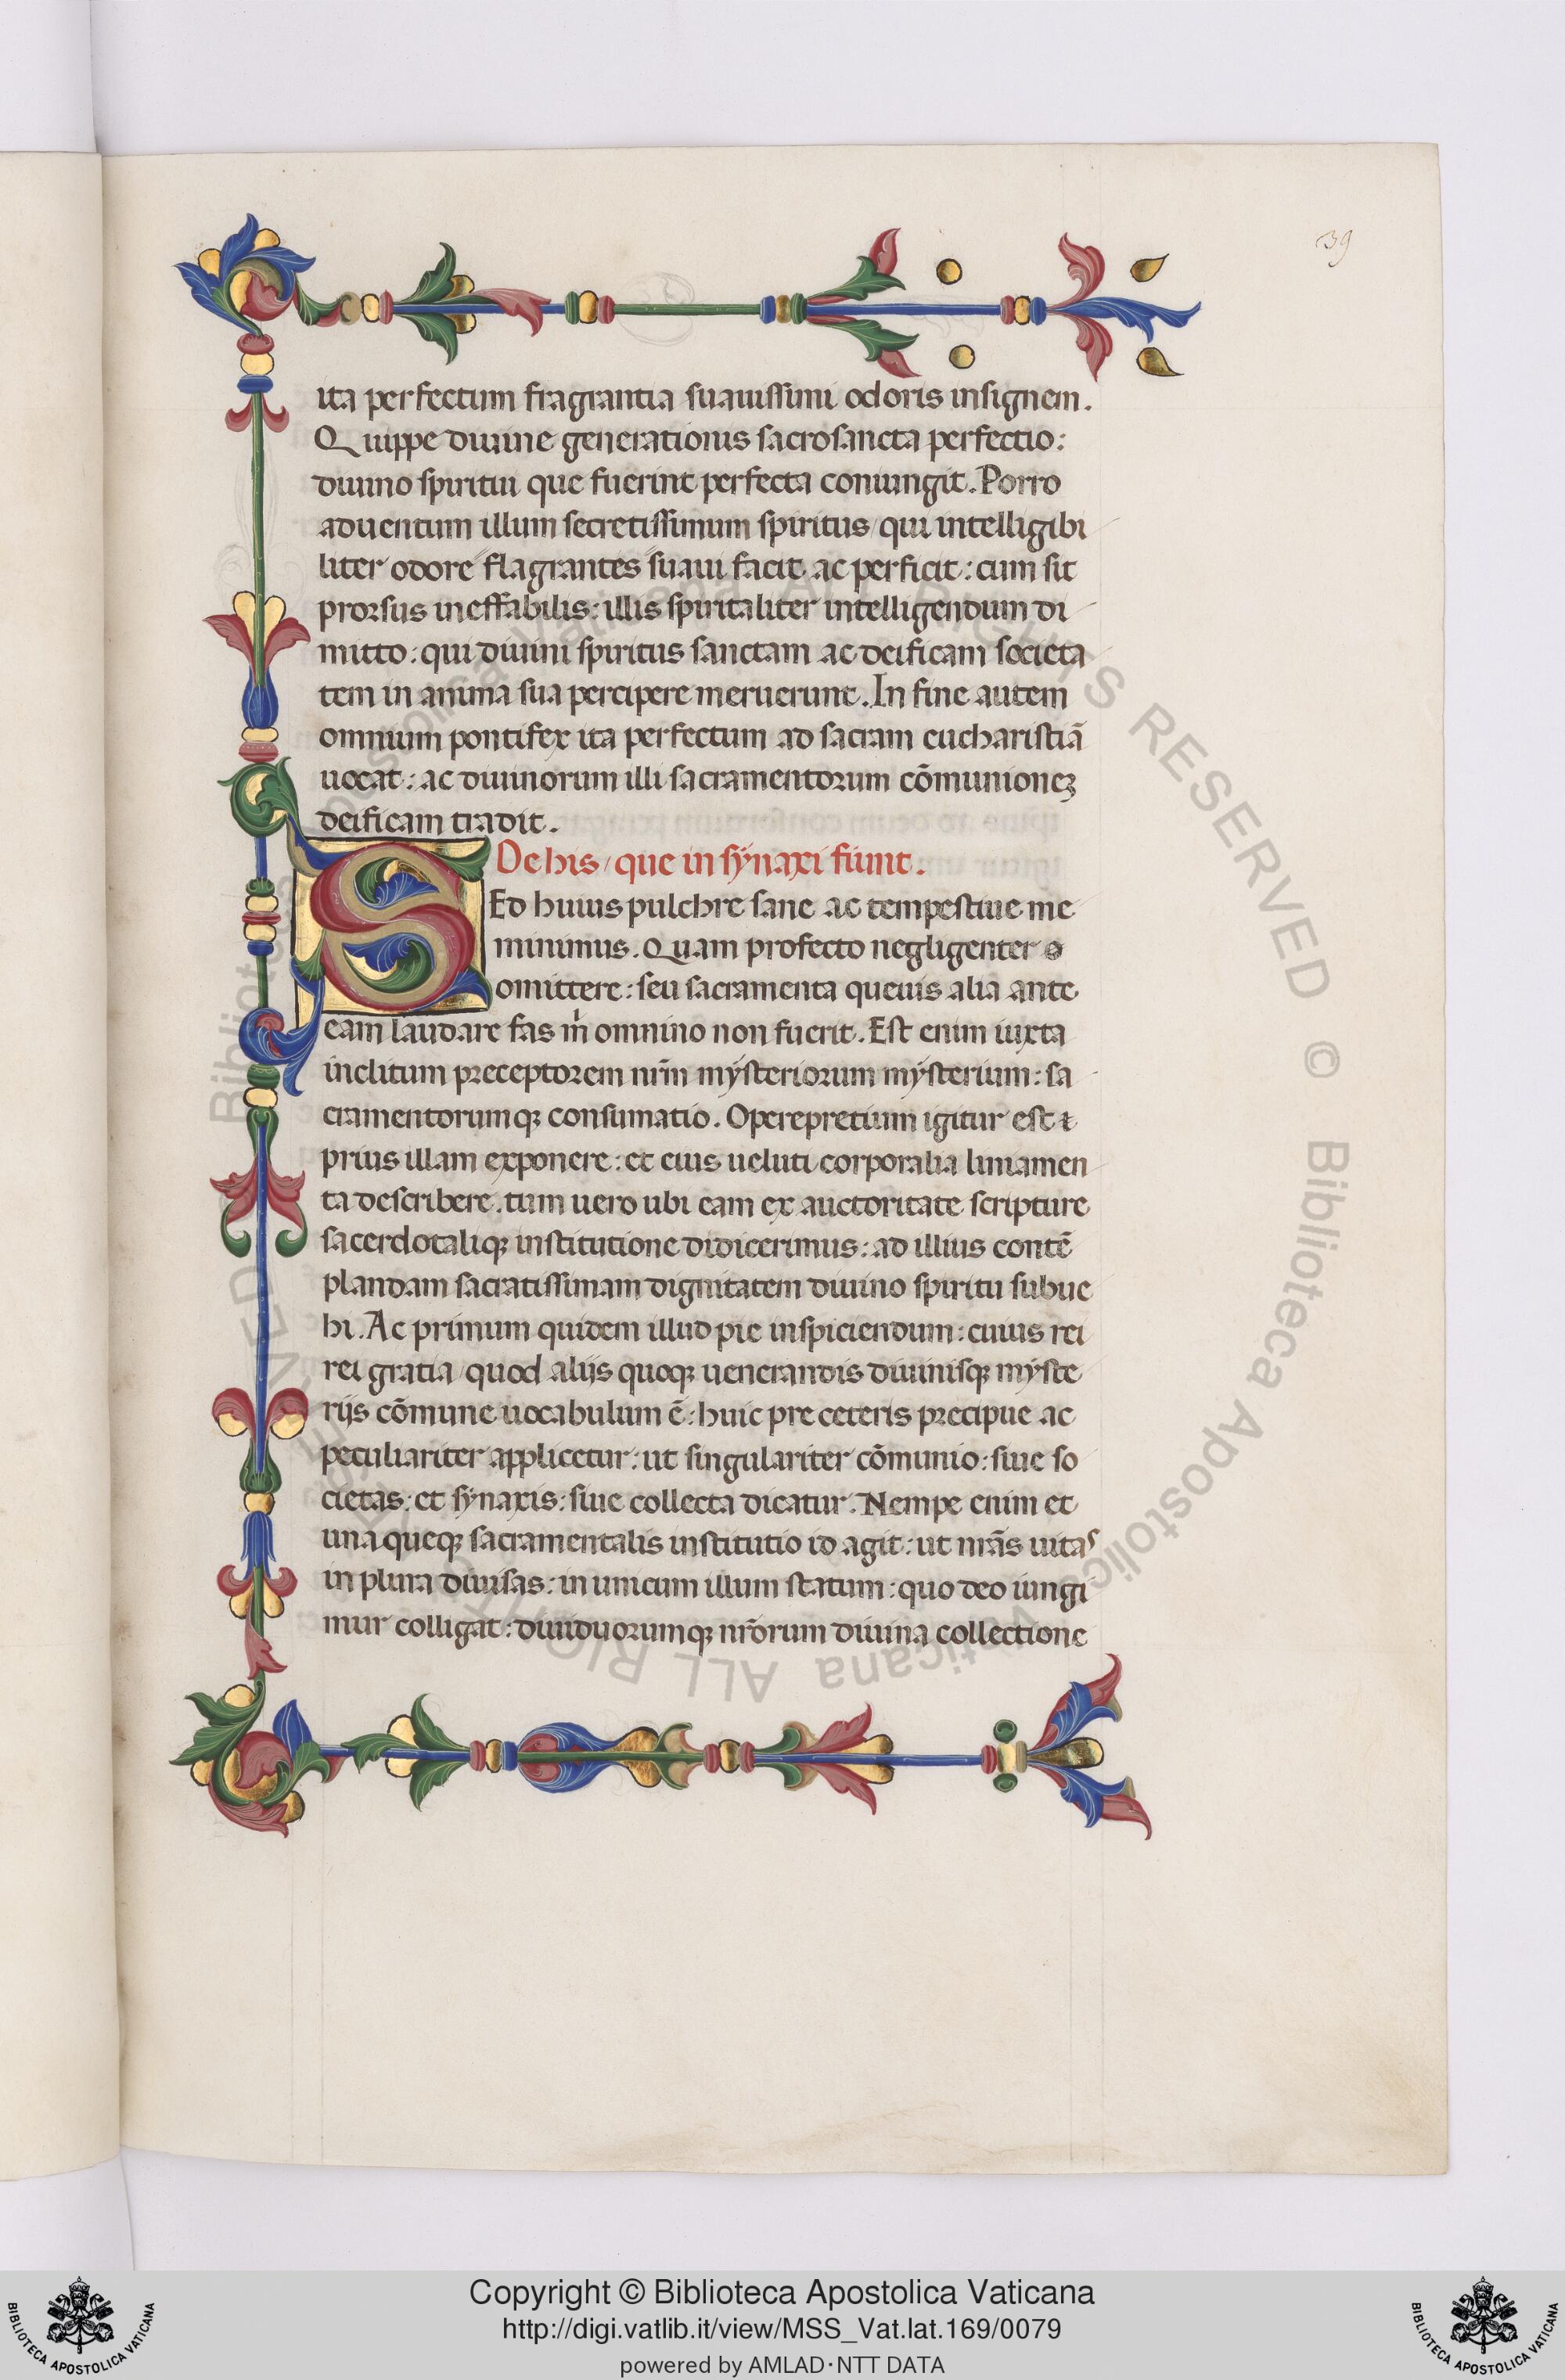 39
ita perfectum fragrantia suauissimi odoris insignem.
Quippe diuine generationis sacrosancta perfectio:
diuino spiritui que fuerint perfecta coniungit. Porro
aduentum illum secretissimum spiritus/ qui intelligibi
liter odore flagrantes suaui facit ac perficit: cum sit
prorsus ineffabilis: illis spiritaliter intelligendum di
mitto: qui diuini spiritus sanctam ac deificam societa
tem in anima sua percipere meruerunt. In fine autem
omnium pontifex ita perfectum ad sacram eucharistiā
uocat: ac diuinorum illi sacramentorum cōmunioneꝫ
deificam tradit.
De his/ que in synaxi fiunt.
SEd huius pulchre sane ac tempestiue me
minimus. Quam profecto negligenter o
omittere: seu sacramenta queuis alia ante
eam laudare fas m̄ omnino non fuerit. Est enim iuxta
inclitum preceptorem nr̄m mysteriorum mysterium: sa
cramentorumqꝫ consumatio. Operepretium igitur est ⁊
prius illam exponere: et eius ueluti corporalia liniamen
ta describere. tum uero ubi eam ex auctoritate scripture
sacerdotaliqꝫ institutione didicerimus: ad illius contē
plandam sacratissimam dignitatem diuino spiritu subue
hi. Ac primum quidem illud pie inspiciendum: cuius rei
rei gratia/ quod alijs quoqꝫ uenerandis diuinisqꝫ myste
rijs cōmune uocabulum ē: huic pre ceteris precipue ac
peculiariter applicetur: ut singulariter cōmunio: siue so
cietas: et synaxis: siue collecta dicatur. Nempe enim et
una queqꝫ sacramentalis institutio id agit: ut nr̄as uitas
in plura diuisas: in unicum illum statum: quo deo iungi
mur colligat: diuiduorumqꝫ nr̄orum diuina collectione
Biblioteca Apostolica Vaticana ALL RIGHTS RESERVED © Biblioteca Apostolica Vaticana ALL RIGHTS RESERVED
Copyright © Biblioteca Apostolica Vaticana
http://digi.vatlib.it/view/MSS_Vat.lat.169/0079
powered by AMLAD·NTT DATA
BIBLIOTECA APOSTOLICA VATICANA
BIBLIOTECA APOSTOLICA VATICANA